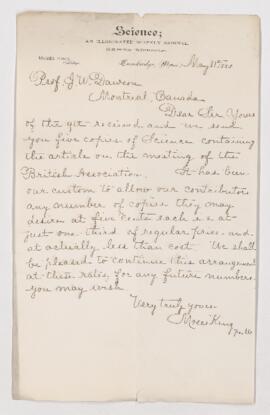 Science;
AN ILLUSTRATED WEEKLY JOURNAL.
Cambridge, Mass. May 11th
Prof J. W. Dawson
Montreal, Canada
Dear Sir Yours
of the 9th received and we send
you five copies of Science containing
the article on the meeting of the
British Association. It has been
our custom to allow our contributors
any number of copies they may
desire at five cents each i.e. at
just one third of regular price and
at actually less than cost. We shall
be pleased to continue this arrangement
at these rates for any future numbers
you may wish
Very truly yours
Moses King